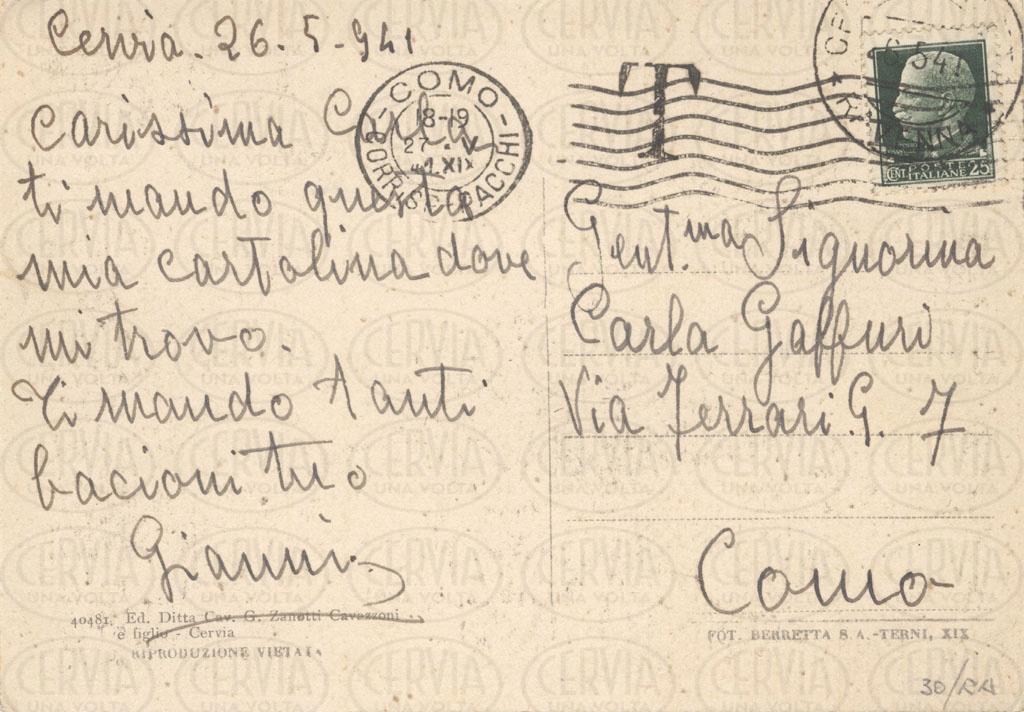 Cervia. 26.5.941
Carissima Carla
ti mando questa
mia cartolina dove
mi trovo.
Ti mando tanti
bacioni tuo
Gianni
40481. Ed. Ditta Cav. G. Zanotti Cavazzoni
e figlio - Cervia
RIPRODUZIONE VIETATA
COMO
18-19
27 V
41 XIX
CORRISP. PACCHI
T
RAVENNA
CENT. ITALIANE 25
Gent.ma Signorina
Carla Gaffuri
Via Ferrari G. 7
Como
FOT. BERRETTA S. A. - TERNI, XIX
30/RA
CERVIA
UNA VOLTA